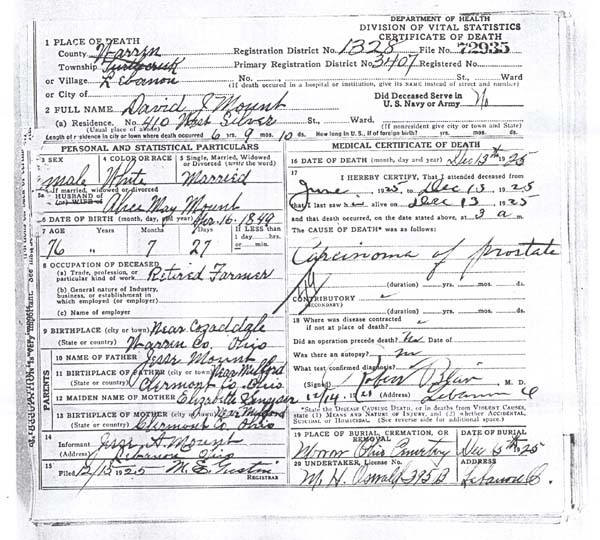 DEPARTMENT OF HEALTH
DIVISION OF VITAL STATISTICS
CERTIFICATE OF DEATH
1 PLACE OF DEATH
County Warren Registration District No. 1328 File No. 72935
Township Turtlecreek Primary Registration District No. 3407 Registered No.
or Village Lebanon No. St., Ward
(If death occured in a hospital or institution, give its NAME instead of street and number)
or City of
Did Deceased Serve in
U. S. Navy or Army No
2 FULL NAME David J Mount
(a) Residence. No. 410 West Silver St., Ward.
(Usual place of abode) (If nonresident give city or town and State)
Length of residence in city or town where death occurred 6 yrs. 9 mos. 10 ds. How long in U. S., if of foreign birth? yrs. mos. ds.
PERSONAL AND STATISTICAL PARTICULARS
3 SEX 4 COLOR OR RACE 5 Single, Married, Widowed
or Divorced (write the word)
male White Married
If married, widowed or divorced
HUSBAND of
(or) WIFE of Alice May Mount
6 DATE OF BIRTH (month, day, and year) Apr. 16. 1849
7 AGE Years Months Days If LESS than
1 day, hrs.
or min.
76 7 27
8 OCCUPATION OF DECEASED
(a) Trade, profession, or
particular kind of work Retired Farmer
(b) General nature of Industry,
business, or establishment in
which employed (or employer)
(c) Name of employer
9 BIRTHPLACE (city or town) Near Cozaddale
(State or country) Warren Co. Ohio
PARENTS
10 NAME OF FATHER Jesse Mount
11 BIRTHPLACE OF FATHER (city or town) Near Milford
(State or country) Clermont Co. Ohio
12 MAIDEN NAME OF MOTHER Elizabeth
13 BIRTHPLACE OF MOTHER (city or town) Near Milford
(State or country) Clermont Co. Ohio
14
Informant Jesse A. Mount
(Address) Lebanon Ohio
15
Filed 12/15 1925 M. E. Gustin
REGISTRAR
MEDICAL CERTIFICATE OF DEATH
16 DATE OF DEATH (month, day and year) Dec 13th 1925
17
I HEREBY CERTIFY, That I attended deceased from
June, 1925, to Dec 13, 1925
that I last saw h alive on Dec 13, 1925
and that death occurred, on the date stated above, at 3 a m.
The CAUSE OF DEATH* was as follows:
Carcinoma of prostate
(duration) yrs. mos. ds.
CONTRIBUTORY
(SECONDARY)
(duration) yrs. mos. ds.
18 Where was disease contracted
if not at place of death?
Did an operation precede death? Date of
Was there an autopsy? no
What test confirmed diagnosis?
(Signed) Robert Blair M. D.
12/14, 192 (Address) Lebanon O
*State the DISEASE CAUSING DEATH, or in deaths from VIOLENT CAUSES,
state (1) MEANS AND NATURE OF INJURY, and (2) whether ACCIDENTAL,
SUICIDAL or HOMICIDAL. (See reverse side for additional space.)
19 PLACE OF BURIAL, CREMATION, OR
REMOVAL DATE OF BURIAL
Morrow Ohio Cemetery Dec 15th 1925
20 UNDERTAKER, License No. ADDRESS
M. H. Oswald 395B Lebanon O.